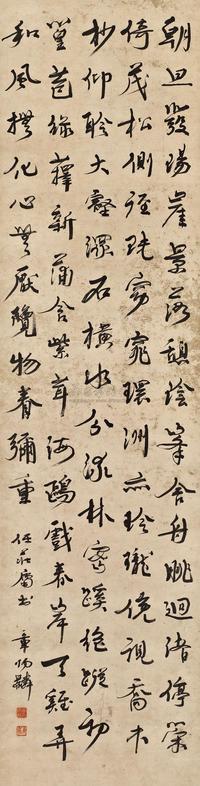 朝旦發陽崖景落憩陰峯舍舟眺迴渚停策
倚茂松側逕既窈窕環洲亦玲瓏俛視喬木
杪仰聆大壑灇石橫水分流林密蹊絕蹤初
篁苞綠籜新蒲含紫茸海鷗戲春岸天雞弄
和風撫化心無厭覽物眷彌重
屬書 章炳麟